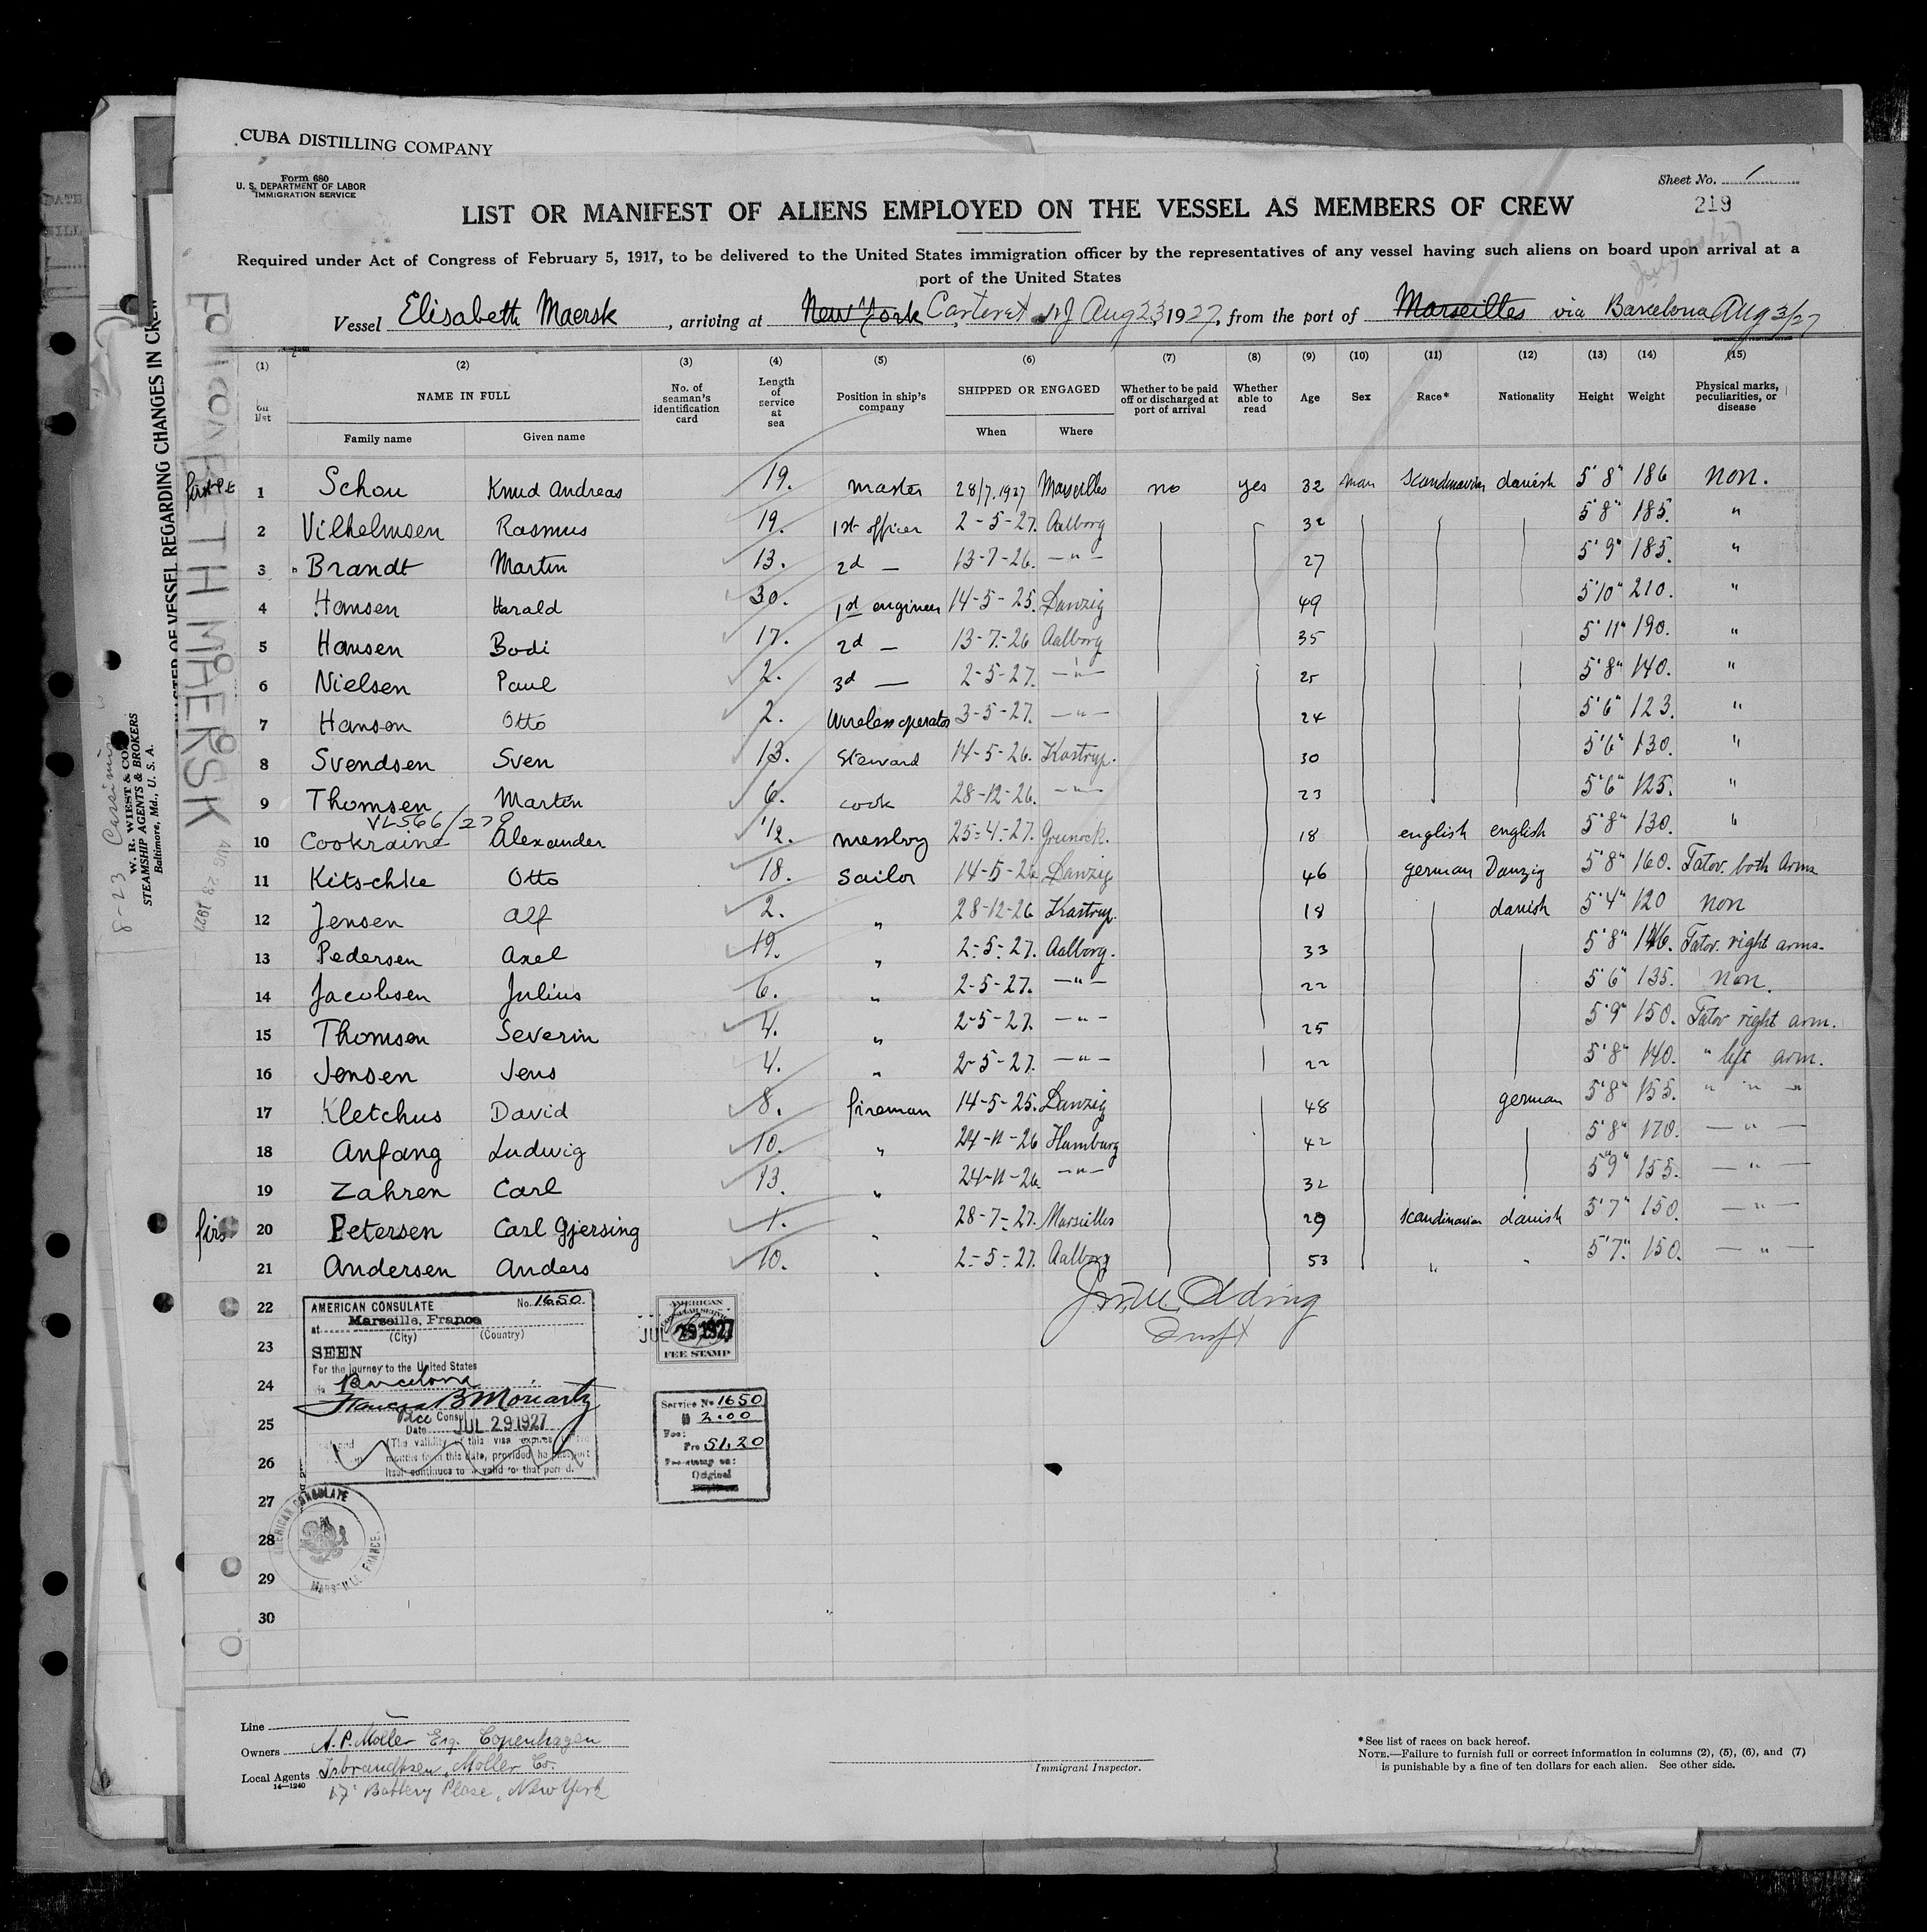 CUBA DISTILLING COMPANY
Form 680
U. S. DEPARTMENT OF LABOR
IMMIGRATION SERVICE
Sheet No. 1
219
LIST OR MANIFEST OF ALIENS EMPLOYED ON THE VESSEL AS MEMBERS OF CREW
Required under Act of Congress of February 5, 1917, to be delivered to the United States immigration officer by the representatives of any vessel having such aliens on board upon arrival at a
port of the United States
Vessel Elisabeth Maersk, arriving at New York Carteret NJ Aug 23, 1927, from the port of Marseilles via Barcelona Aug 3/27
(1) (2) (3) (4) (5) (6) (7) (8) (9) (10) (11) (12) (13) (14) (15)
on list
NAME IN FULL
Family name Given name
No. of seaman's identification card
Length of service at sea
Position in ship's company
SHIPPED OR ENGAGED
When Where
Whether to be paid off or discharged at port of arrival
Whether able to read
Age Sex Race* Nationality Height Weight
Physical marks, peculiarities, or disease
1 Schou Knud Andreas 19. master 28/7.1927 Marseilles no yes 32 man scandinavian danish 5'8" 186 non.
2 Vilhelmsen Rasmus 19. 1st officer 2-5-27. Aalborg 32 5'8" 185. "
3 " Brandt Martin 13. 2d — 13-7-26. —"— 27 5'9" 185. "
4 Hansen Harald 30. 1st engineer 14-5-25. Danzig 49 5'10" 210. "
5 Hansen Bodi 17. 2d — 13-7-26 Aalborg 35 5'11" 190. "
6 Nielsen Paul 2. 3d — 2-5-27. —"— 25 5'8" 140. "
7 Hansen Otto 2. Wireless operator 3-5-27. —"— 24 5'6" 123. "
8 Svendsen Sven 13. Steward 14-5-26. Kastrup. 30 5'6" 130. "
9 Thomsen Martin 6. cook 28-12-26. —"— 23 5'6" 125. "
10 Cookraine Alexander 1/2. messboy 25-4-27. Greenock. 18 english english 5'8" 130. "
11 Kitschke Otto 18. Sailor 14-5-26 Danzig 46 german Danzig 5'8" 160. Tatov. both arms
12 Jensen Alf 2. " 28-12-26 Kastrup. 18 danish 5'4" 120 non
13 Pedersen Axel 19. " 2-5-27. Aalborg. 33 5'8" 146. Tatov. right arms.
14 Jacobsen Julius 6. " 2-5-27. —"— 22 5'6" 135. non.
15 Thomsen Severin 4. " 2-5-27. —"— 25 5'9" 150. Tatov right arm.
16 Jensen Jens 4. " 2-5-27. —"— 22 5'8" 140. " left arm.
17 Kletchus David 8. fireman 14-5-25. Danzig 48 german 5'8" 155. " " "
18 Anfang Ludwig 10. " 24-11-26 Hamburg 42 5'8" 170. —"—
19 Zahren Carl 13. " 24-11-26. —"— 32 5'9" 155. —"—
20 Petersen Carl Gjersing 1. " 28-7-27. Marseilles 29 scandinavian danish 5'7" 150. —"—
21 Andersen Anders 10. " 2-5-27. Aalborg 53 " " 5'7" 150. —"—
22
23
24
25
26
27
28
29
30
AMERICAN CONSULATE No. 1650
at Marseille, France
(City) (Country)
SEEN
For the journey to the United States
Barcelona
Vice Consul
Date JUL 29 1927
AMERICAN
JUL 29 1927
FEE STAMP
Service No 1650
2.00
Fee:
Frs 51.20
Original
AMERICAN CONSULATE
MARSEILLE FRANCE
Line
Owners A. P. Moller Esq. Copenhagen
Local Agents Isbrandtsen, Moller Co.
14—1240
17 Battery Place, New York
Immigrant Inspector.
*See list of races on back hereof.
NOTE.—Failure to furnish full or correct information in columns (2), (5), (6), and (7)
is punishable by a fine of ten dollars for each alien. See other side.
W. R. WIEST & CO.
STEAMSHIP AGENTS & BROKERS
Baltimore, Md., U. S. A.
OF VESSEL REGARDING CHANGES IN CREW
AUG 23 1927